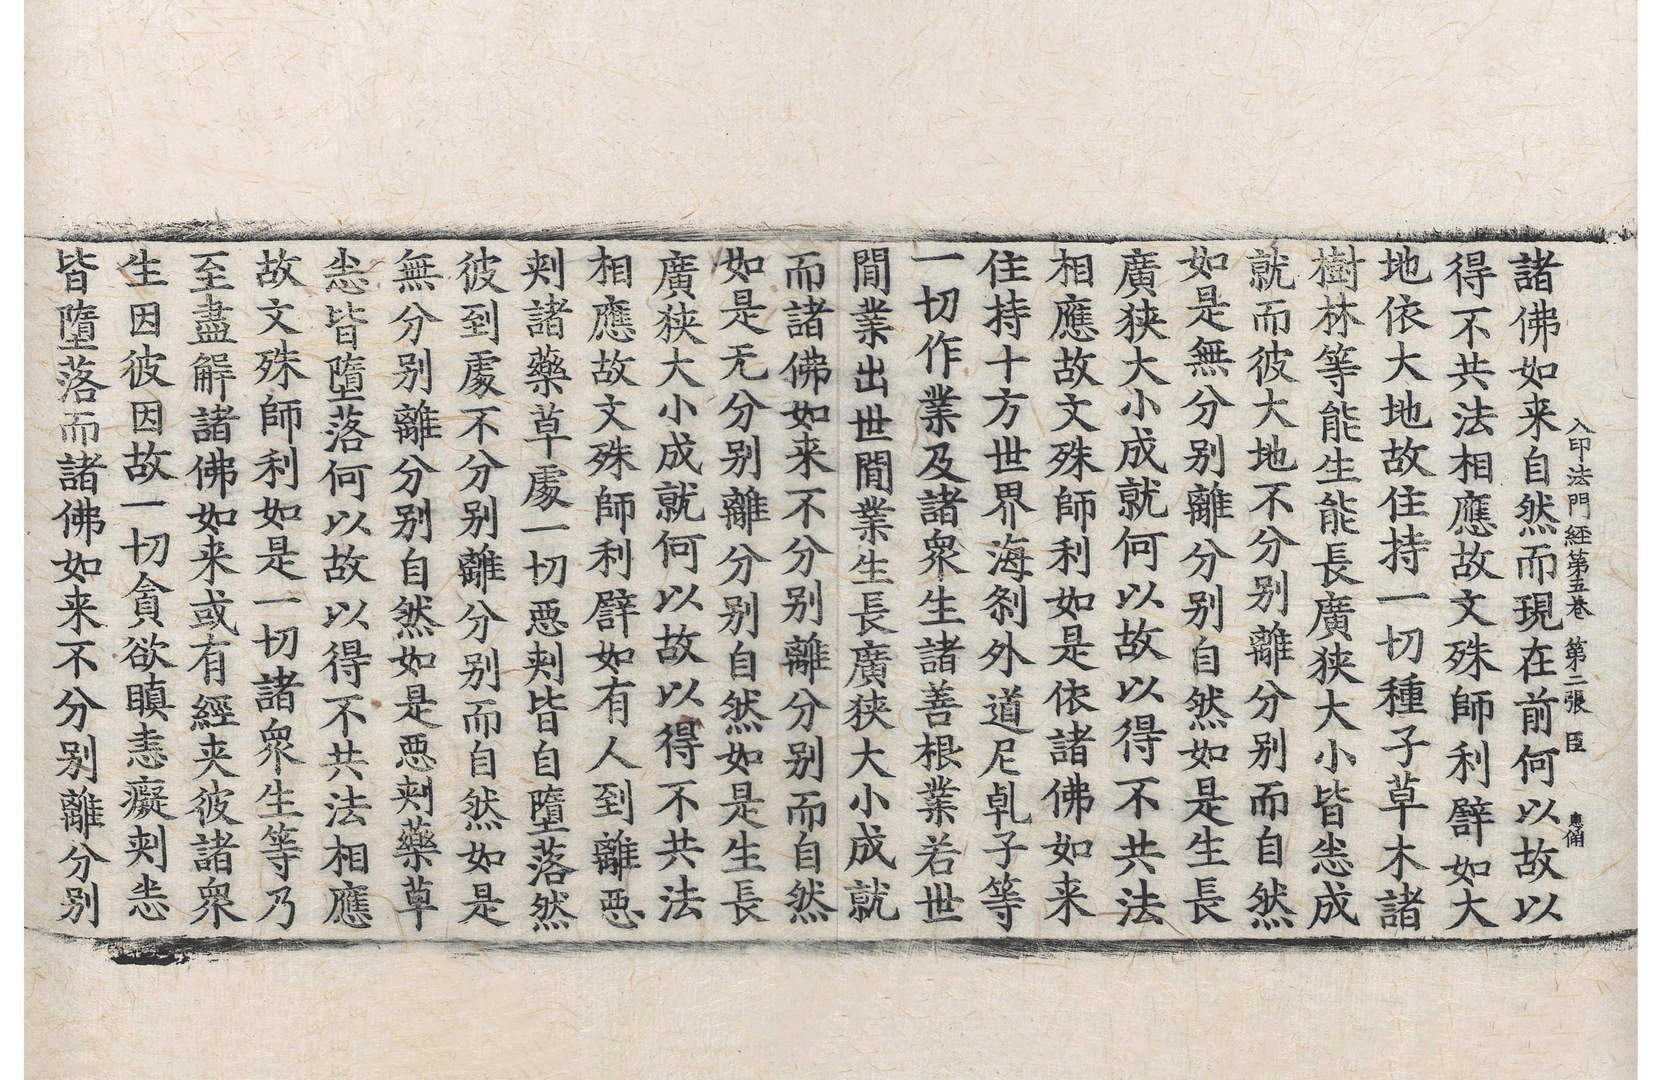 入印法門経第五巻 第二張 臣
諸佛如来自然而現在前何以故以
得不共法相應故文殊師利譬如大
地依大地故住持一切種子草木諸
樹林等能生能長廣狹大小皆悉成
就而彼大地不分别離分别而自然
如是無分别離分别自然如是生長
廣狹大小成就何以故以得不共法
相應故文殊師利如是依諸佛如来
住持十方世界海刹外道尼乹子等
一切作業及諸衆生諸善根業若世
間業出世間業生長廣狹大小成就
而諸佛如来不分别離分别而自然
如是无分别離分别自然如是生長
廣狹大小成就何以故以得不共法
相應故文殊師利譬如有人到離惡
刺諸藥草處一切惡刺皆自墮落然
彼到處不分别離分别而自然如是
無分别離分别自然如是惡刺藥草
悉皆墮落何以故以得不共法相應
故文殊師利如是一切諸衆生等乃
至盡解諸佛如来或有經夹彼諸衆
生因彼因故一切貪欲瞋恚癡刺悉
皆墮落而諸佛如来不分别離分别